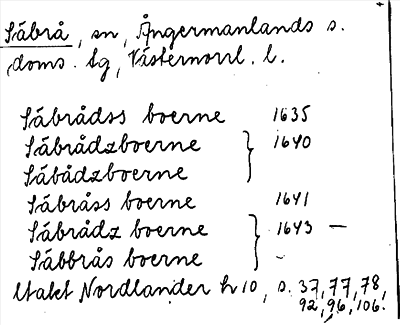 Säbrå, sn, Ångermanlands s.
doms. tg, Västernorrl. l.
Säbrådss boerne 1635
Säbrådzboerne } 1640
Säbådzboerne
Säbråss boerne 1641
Säbrådz boerne } 1643 —
Säbbrås boerne -
Utalet Nordlander h 10, s. 37, 77, 78,
92, 96, 106.